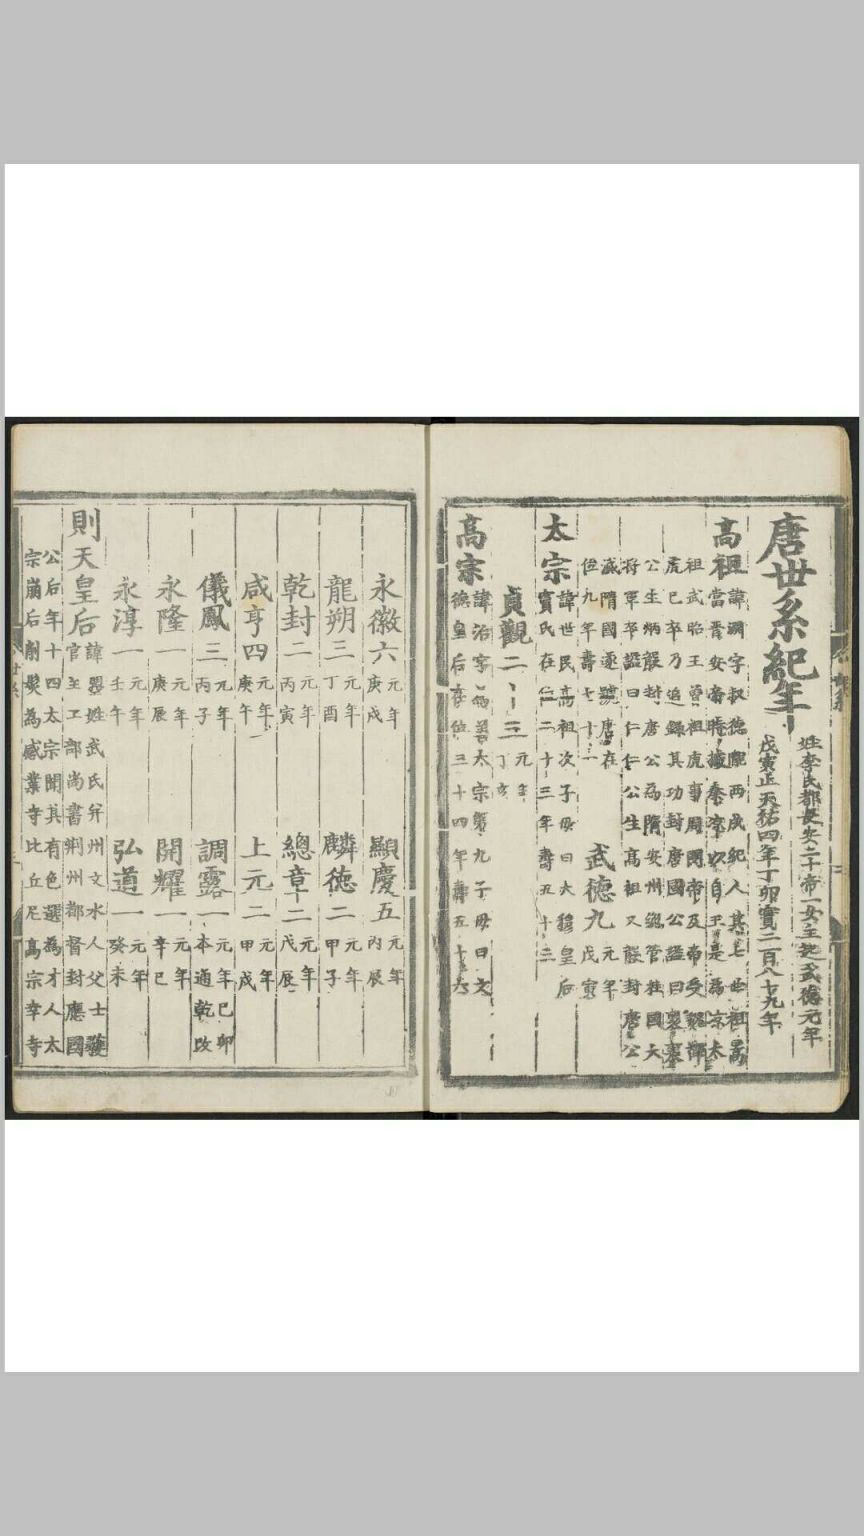 唐世系紀年
姓李氏都長安二十帝一女主起武德元年
戊寅止天祐四年丁卯實二百八十九年
高祖
諱淵字叔德隴西成紀人其七世祖暠
當晉安帝時據秦涼以自王是為涼太
祖武昭王曾祖虎事周閔帝及帝受魏禪
虎已卒乃追錄其功封唐國公諡曰襄襄
公生炳襲封唐公為隋安州總管柱國大
將軍卒諡曰仁仁公生高祖又襲封唐公
滅隋國遂號唐在
位九年壽七十一
武德九
元年
戊寅
太宗
諱世民高祖次子母曰太穆皇后
竇氏在位二十三年壽五十三
貞觀二十三
元年
丁亥
高宗
諱治字為善太宗第九子母曰文
德皇后在位三十四年壽五十六
永徽六
元年
庚戌
顯慶五
元年
丙辰
龍朔三
元年
丁酉
麟德二
元年
甲子
乾封二
元年
丙寅
總章二
元年
戊辰
咸亨四
元年
庚午
上元二
元年
甲戌
儀鳳三
元年
丙子
調露一
元年己卯
本通乾改
永隆一
元年
庚辰
開耀一
元年
辛巳
永淳一
元年
壬午
弘道一
元年
癸未
則天皇后
諱曌姓武氏并州文水人父士彠
官至工部尚書荆州都督封應國
公后年十四太宗聞其有色選為才人太
宗崩后削髮為感業寺比丘尼高宗幸寺